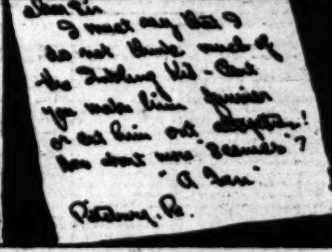 Dear Sir
I must say that I
do not think much of
the Kid - Can't
you make him funnier
or cut him out altogether!
How about more "Seamas"?
"A Fan"
Pittsburg. Pa.